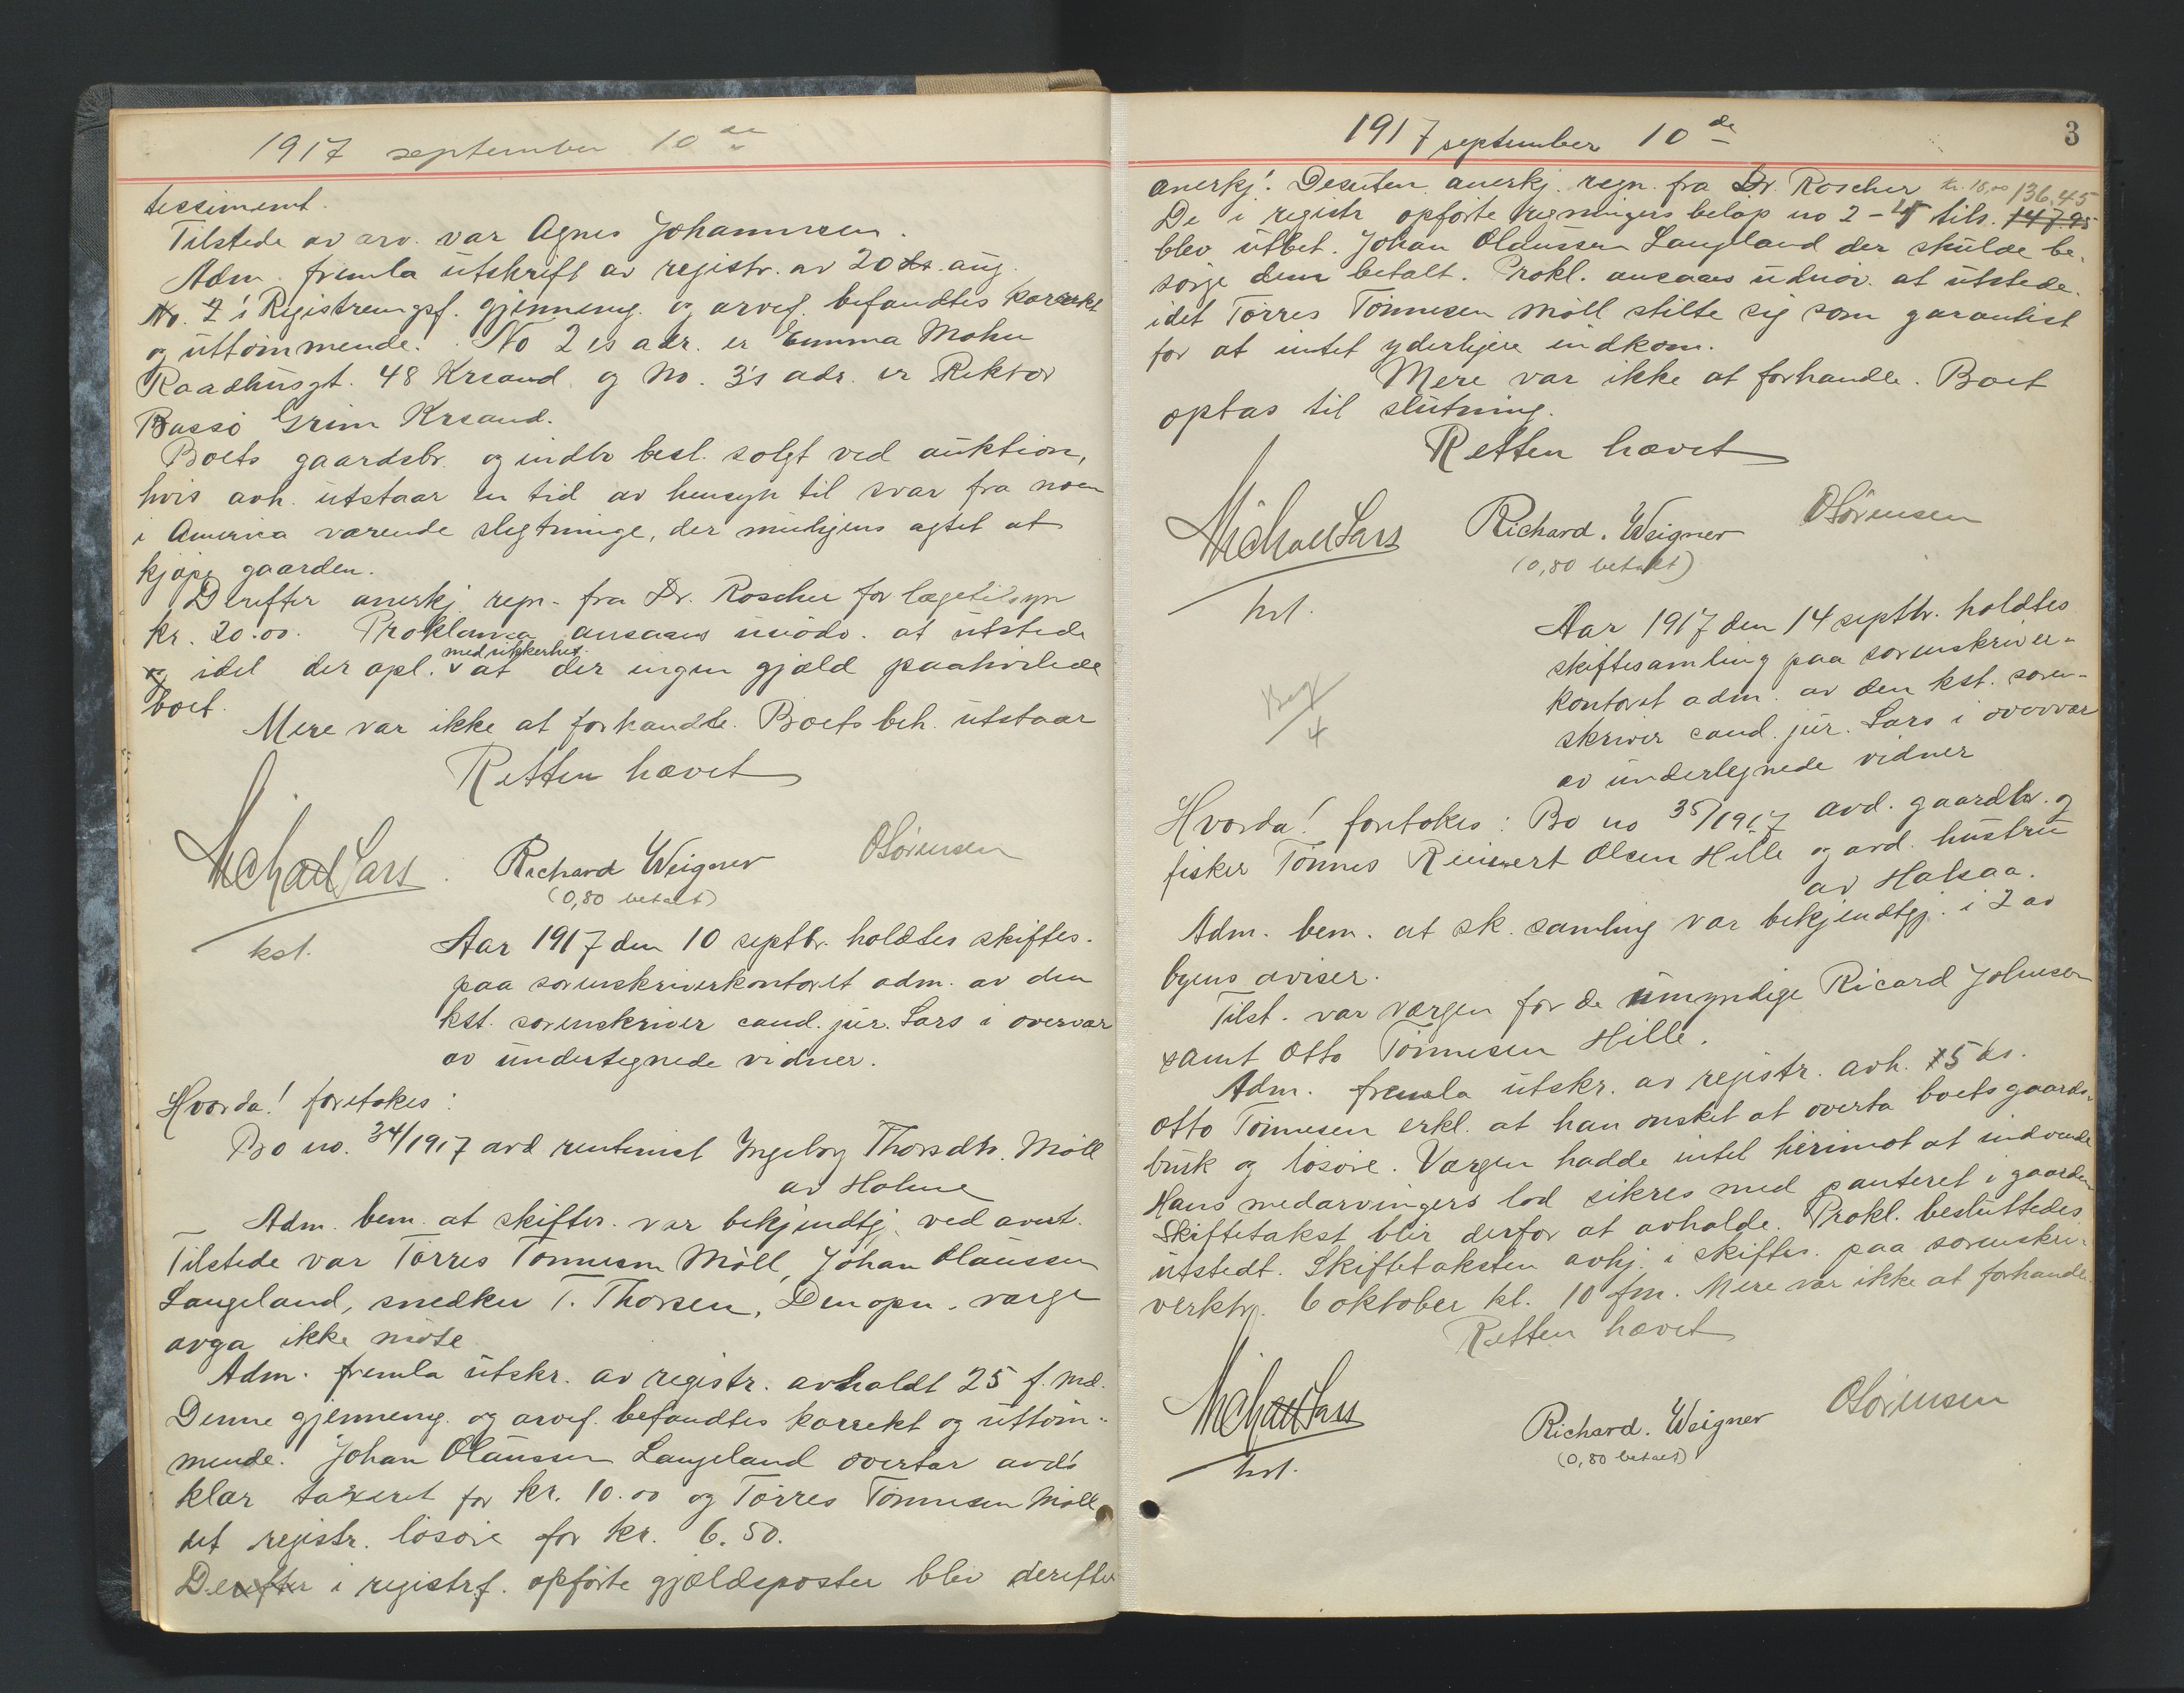 1917 september 10de
tessiment.
Tilstede av arv. var Agnes Johannesen.
Adm. fremla utskrift av registr. av 20 ds. aug.
No. 2 i Registreringsf. gjenneng. og arvef. befandtes korrekt
og uttømmende. No 2 es adr. er Emma Mohn
Raadhusgt. 48 Krsand og No. 3's adr. er Rektor
Bassö Grim Krsand.
Boets gaardsbr. og indbo besl. solgt ved auktion,
hvis avh. utstaar en tid av hensyn til svar fra noen
i America værende slegtninge, der muligens agtet at
kjøpe gaarden.
Derefter anerkj. regn. fra Dr. Roscher for lægetilsyn
kr. 20.00. Proklama ansaaes unødv. at utstede
og idet der opl. med sikkerhet at der ingen gjæld paahvilede
boet.
Mere var ikke at forhandle. Boets beh. utstaar
Retten hævet
Michael Sars. Richard Weigner OSørensen
(0,80 betalt)
kst.
Aar 1917 den 10 septbr. holdtes skiftes.
paa sorenskriverkontoret adm. av den
kst. sorenskriver cand. jur. Sars i overvær
av undertegnede vidner.
Hvorda! foretokes:
Bo no. 34/1917 avd rentenist Ingeborg Thorsdtr. Möll
av Holme
Adm. bem. at skiftes. var bekjendtgj. ved avert.
Tilstede var Tørres Tønnesen Möll, Johan Olaussen
Langeland, snedker T. Thorsen, Den opn. værge
avga ikke møte
Adm. fremla utskr. av registr. avholdt 25 f. md.
Denne gjenneng. og arvef. befandtes korrekt og uttøm-
mende. Johan Olaussen Langeland overtar avd's
klær taxeret for kr. 10.00 og Tørres Tønnesen Möll
det registr. løsøre for kr. 6.50.
Derefter i registrf. opførte gjældsposter blev derefter
1917 september 10de
3
anerkj. Desuten anerkj. regn. fra Dr. Roscher kr. 18,00 136.45
De i registr opførte regningers beløp no 2-4 tils. 147.95
blev utbet. Johan Olaussen Langeland der skulde be-
sørge dem betalt. Prokl. ansaaes udnøv. at utstede.
idet Tørres Tönnesen Möll stilte sig som garantist
for at intet yderligere indkom.
Mere var ikke at forhandle. Boet
optas til slutning.
Retten hævet
Michael Sars Richard. Weigner OSørensen
(0,80 betalt)
kst.
Aar 1917 den 14 septbr. holdtes
skiftesamling paa sorenskriver-
kontoret adm. av den kst. soren-
skriver cand. jur. Sars i overvær
av undertegnede vidner
4
Hvorda! foretokes: Bo no 35/1917 avd. gaardbr. og
fisker Tønnes Reinert Olsen Hille og avd. hustru
av Halsaa.
Adm. bem. at sk. samling var bekjendtgj. i 2 av
byens aviser.
Tilst. var værgen for de umyndige Ricard Johnsen
samt Otto Tönnesen Hille.
Adm. fremla utskr. av registr. avh. 15 ds.
Otto Tönnesen erkl. at han ønsket at overta boets gaards-
bruk og løsøre. Værgen hadde intet herimot at indvende
Hans medarvingers lod sikres med panteret i gaarden
Skiftetakst blir derfor at avholde. Prokl. besluttedes
utstedt. Skiftetaksten avhj. i skiftes. paa sorenskri-
verktr. 6 oktober kl. 10 fm. Mere var ikke at forhandle.
Retten hævet
Michael Sars Richard. Weigner OSørensen
(0,80 betalt)
kst.